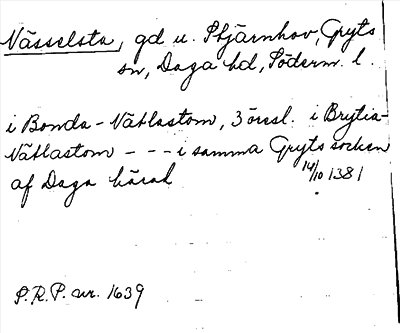 Nässelsta, gd u. Stjärnhov, Gryts
sn, Daga hd, Söderm. l.
i Bonda-Nätlastom, 3 öresl. i Brytia-
Nätlastom - - - i samma Gryts socken
af Daga härad 14/10 1381
S.R.P. nr. 1639